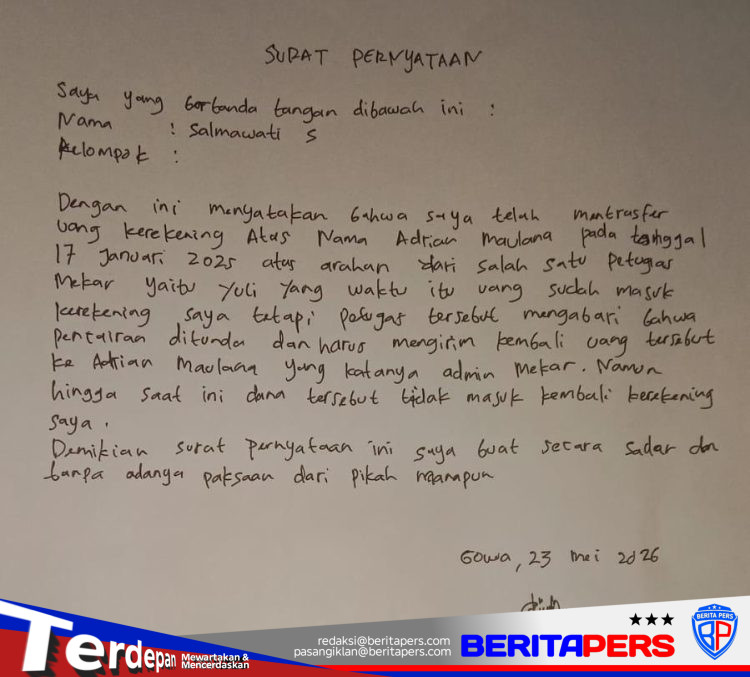 SURAT PERNYATAAN
Saya yang bertanda tangan dibawah ini :
Nama : Salmawati S
Kelompok :
Dengan ini menyatakan bahwa saya telah mentrasfer
uang kerekening Atas Nama Adrian Maulana pada tanggal
17 Januari 2025 atas arahan dari salah satu petugas
Mekar yaitu Yuli yang waktu itu uang sudah masuk
kerekening saya tetapi petugas tersebut mengabari bahwa
pencairan ditunda dan harus mengirim kembali uang tersebut
ke Adrian Maulana yang katanya admin Mekar. Namun
hingga saat ini dana tersebut tidak masuk kembali kerekening
saya.
Demikian surat pernyataan ini saya buat secara sadar dan
tanpa adanya paksaan dari pihak manapun
Gowa, 23 Mei 2026
Terdepan Mewartakan &
Mencerdaskan
redaksi@beritapers.com
pasangiklan@beritapers.com
BERITAPERS
BERITA PERS
BP